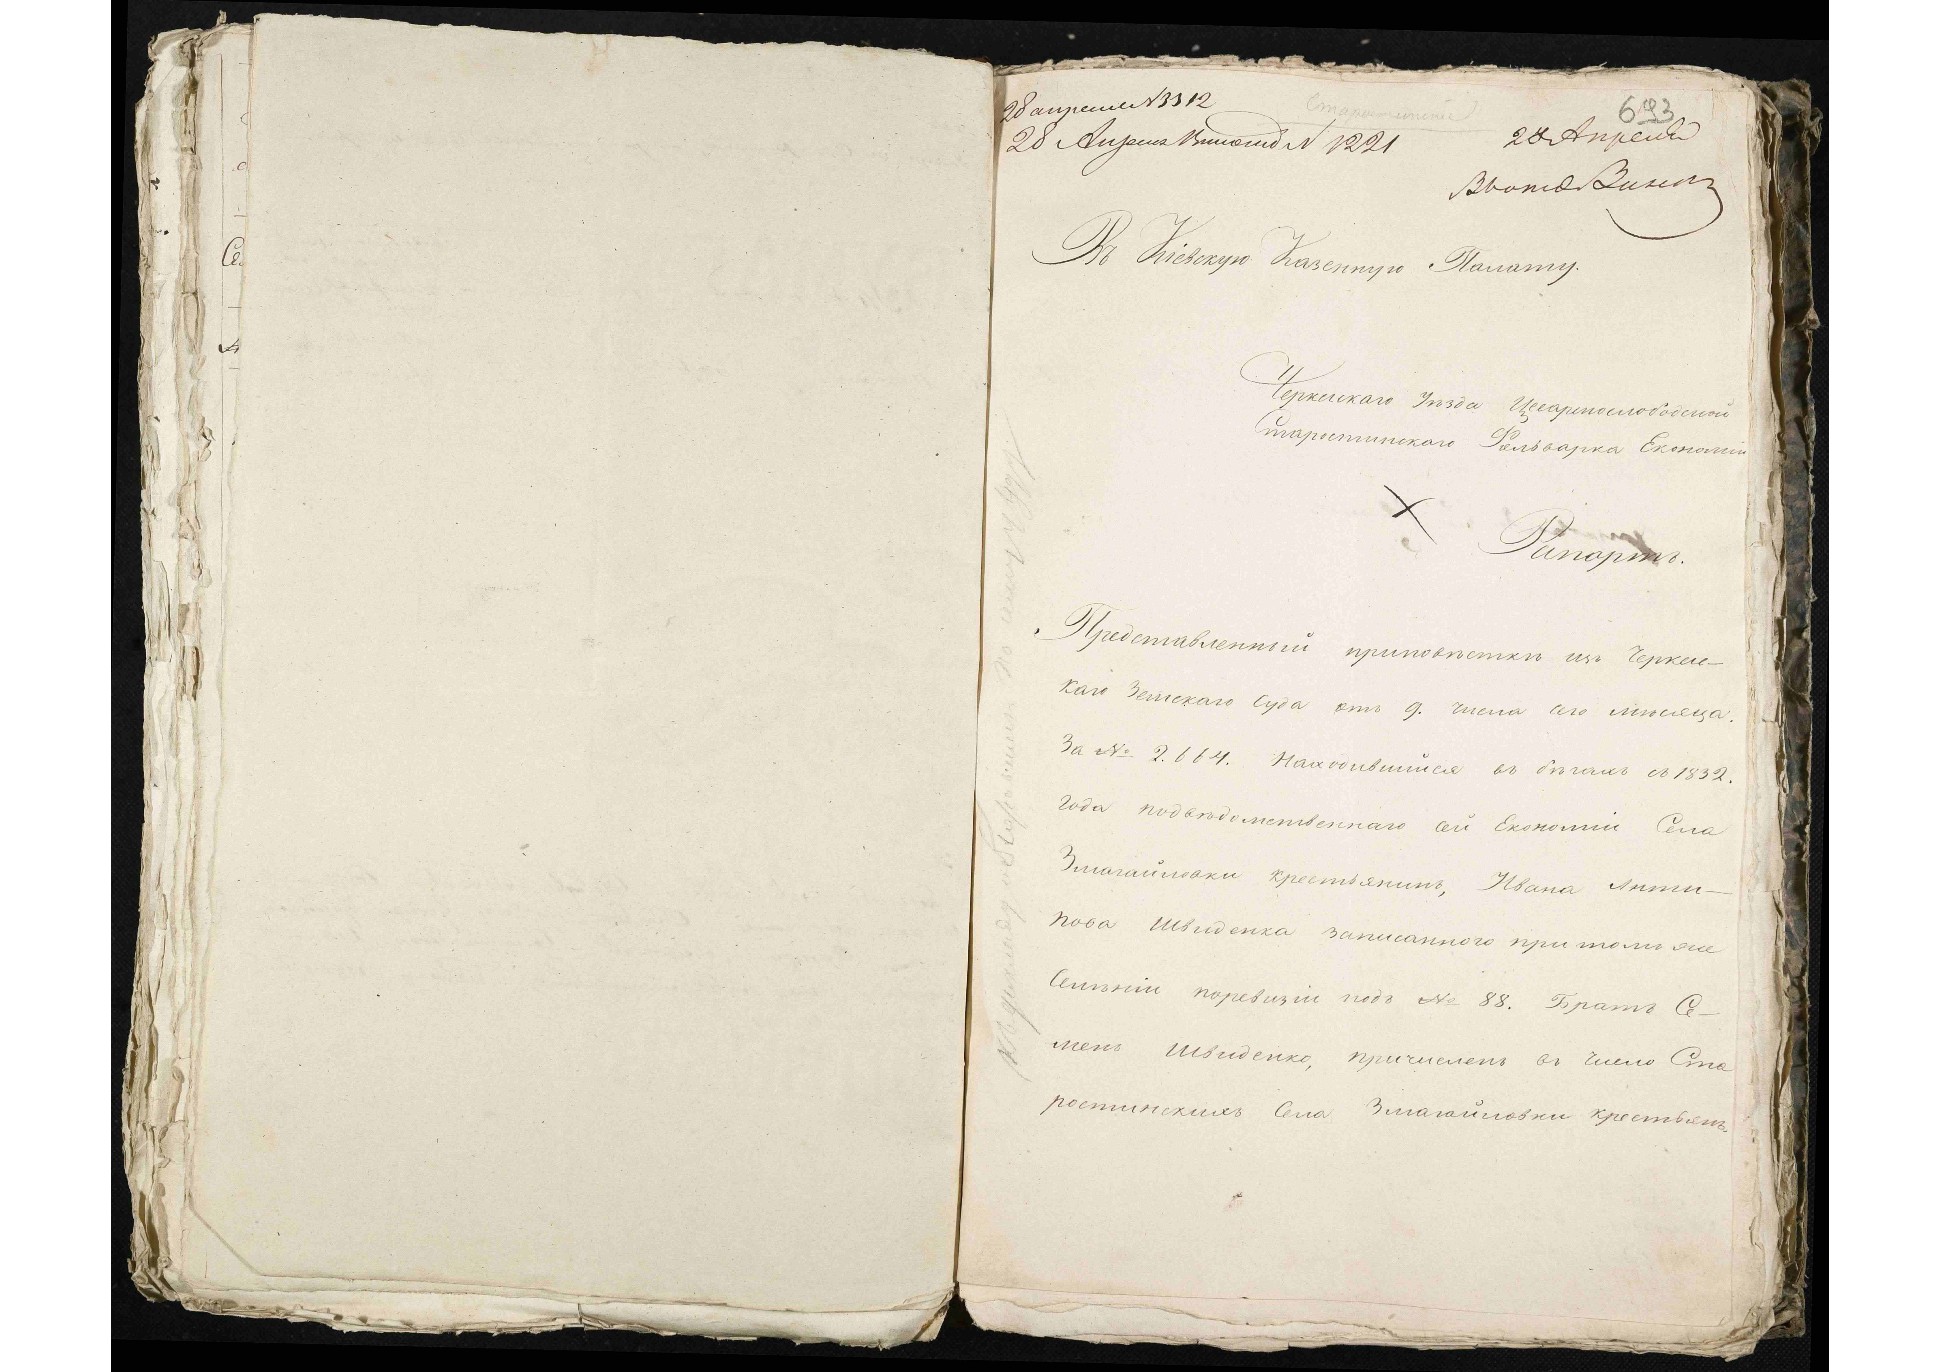 28 апреля № 3312
Старостинскій
693
28 Апреля № 1221
28 Апреля
Въ Кіевскую Казенную Палату.
Черкаскаго Уѣзда Цесарпослободской
Старостинскаго Фольварка Економіи
Рапортъ.
Представленный приповѣсткѣ изъ Черкас-
каго Земскаго Суда отъ 9. числа сего мѣсяца.
За № 2.664. Находившийся въ бѣгахъ съ 1832.
года подвѣдомственнаго сей Економіи Села
Змагайловки крестьянинъ, Ивана Анти-
пова Швиденка записанного при томъ же
Селѣніи поревизіи подъ № 88. Братъ Се-
менъ Швиденко, причисленъ въ число Ста
ростинскихъ Села Змагайловки крестьянъ.